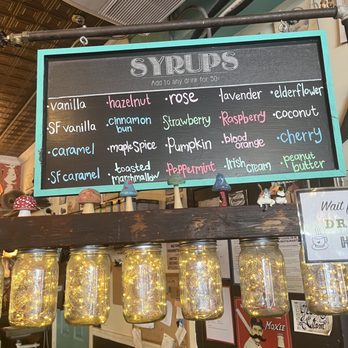 SYRUPS
Add to any drink for 50¢
vanilla
SF vanilla
caramel
SF caramel
hazelnut
cinnamon
bun
maple spice
toasted
marshmallow
rose
Strawberry
Pumpkin
Peppermint
lavender
Raspberry
blood
orange
Irish cream
elderflower
coconut
cherry
peanut
butter
Wait
DR
MOXIE